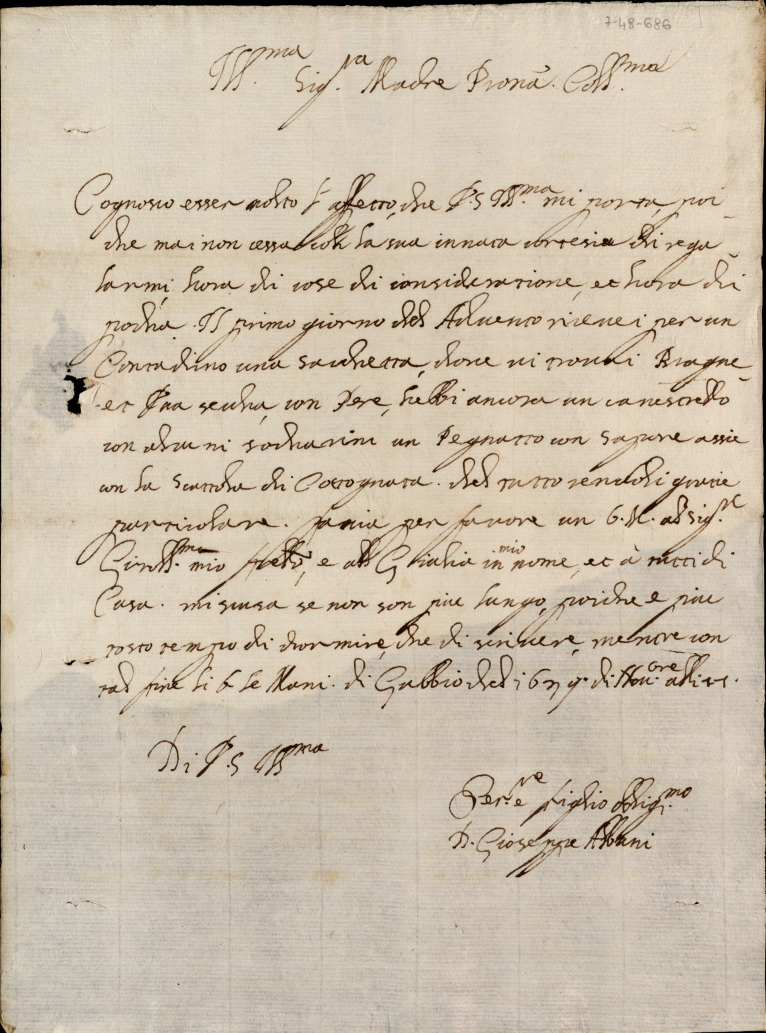 7-48-686
Ill.ma Sig.ra Madre Pronã. Coll.ma
Cognosco esser molto l'affetto, che V.S. Ill.ma mi porta, poi-
che mai non cessa con la sua innata cortesia di rega-
larmi, hora di cose di consideracione, et hora di
pocha. Il primo giorno del Aduento riceuei per un
Contadino una sacchetta, doue ui trouai
et Vua seccha, con Pere, hebbi ancora un canestrello
con alcuni un Pegnatto con sapore assie
con la Scattola di Cotognata. del tutto rendoli gracie
particolare. facia per fauore un b. M. al Sig.r
mio e alla Giulia in mio nome, et à tutti di
Casa. mi scusa se non son piu lungo, poiche e piu
tosto tempo di dormire, che di scriuere, mentre con
tal fine li b. le Mani. di Gubbio di Nou.bre
Di V.S. Ill.ma
figlio oblig.mo
D. Gioseppe Albani